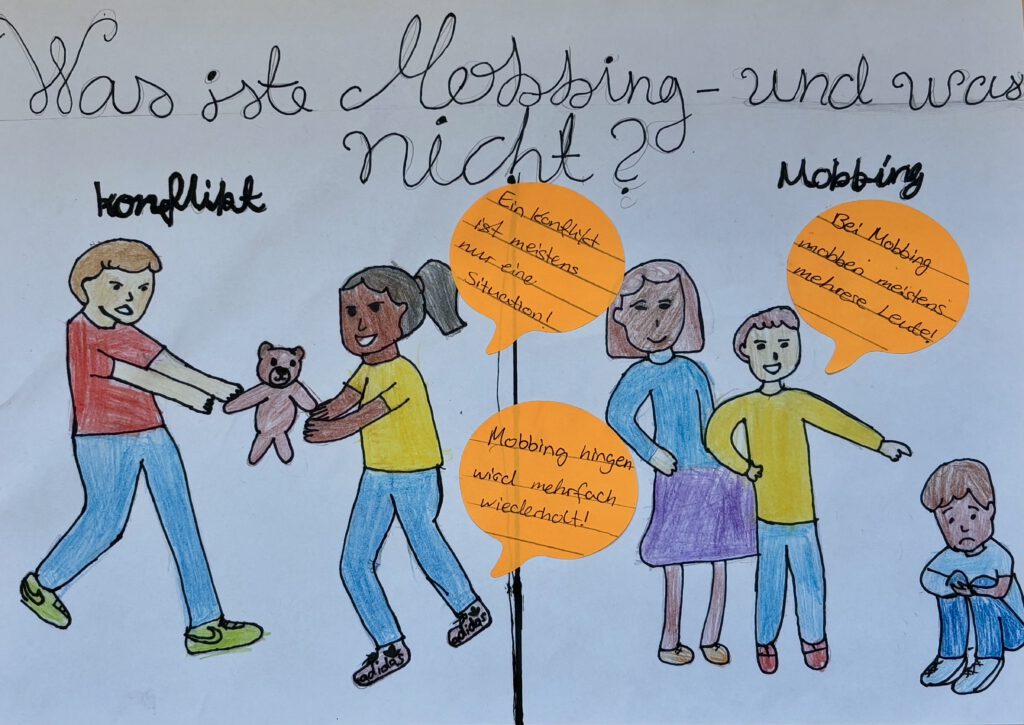 Was iste Mobbing - und was
nicht?
Konflikt
Mobbing
Ein Konflikt
ist meistens
nur eine
Situation!
Bei Mobbing
mobben meistens
mehrese Leute!
Mobbing hingen
wird mehrfach
wiederholt!
adidas
adidas